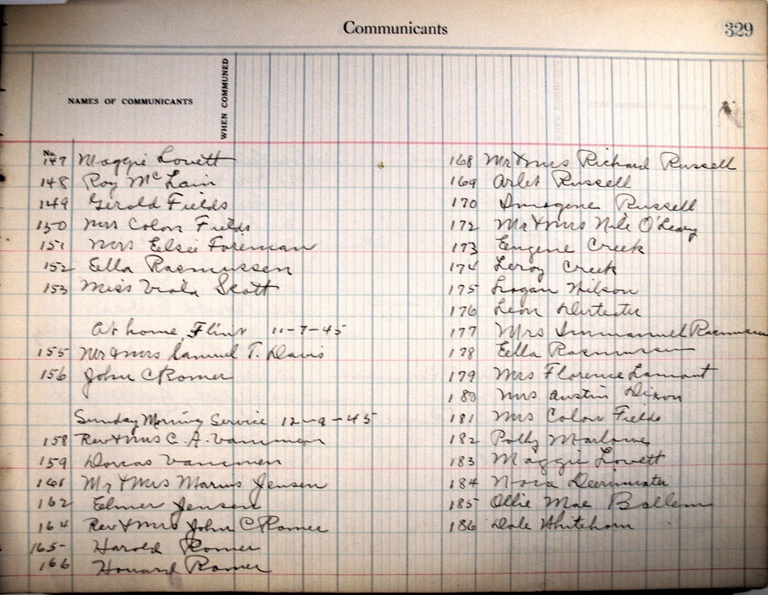 Communicants
329
NAMES OF COMMUNICANTS
WHEN COMMUNED
No.
147 Maggie Lovett
148 Roy McLain
149 Gerold Fields
150 Mrs Colon Fields
151 Mrs Elsie Foreman
152 Ella Rasmussen
153 Miss Viola Scott
At home, Flint 11-7-45
155 Mr & Mrs Samuel T. Davis
156 John C Romer
Sunday Morning Service 12-9-45
158 Rev & Mrs C. A.
159 Dorcas
161 Mr & Mrs Marius Jensen
162 Elmer Jensen
164 Rev & Mrs John C Romer
165 Harold Romer
166 Howard Romer
168 Mr & Mrs Richard Russell
169 Arlet Russell
170 Imogene Russell
172 Mr & Mrs Nile O'Leary
173 Eugene Creek
174 Leroy Creek
175 Logan Wilson
176 Leon
177 Mrs Immanuel Rasmussen
178 Ella Rasmussen
179 Mrs Florence Lamont
180 Mrs Austin Dixon
181 Mrs Colon Fields
182 Polly Marlowe
183 Maggie Lovett
184 Nora
185 Ollie Mae
186 Dale Whitehorn